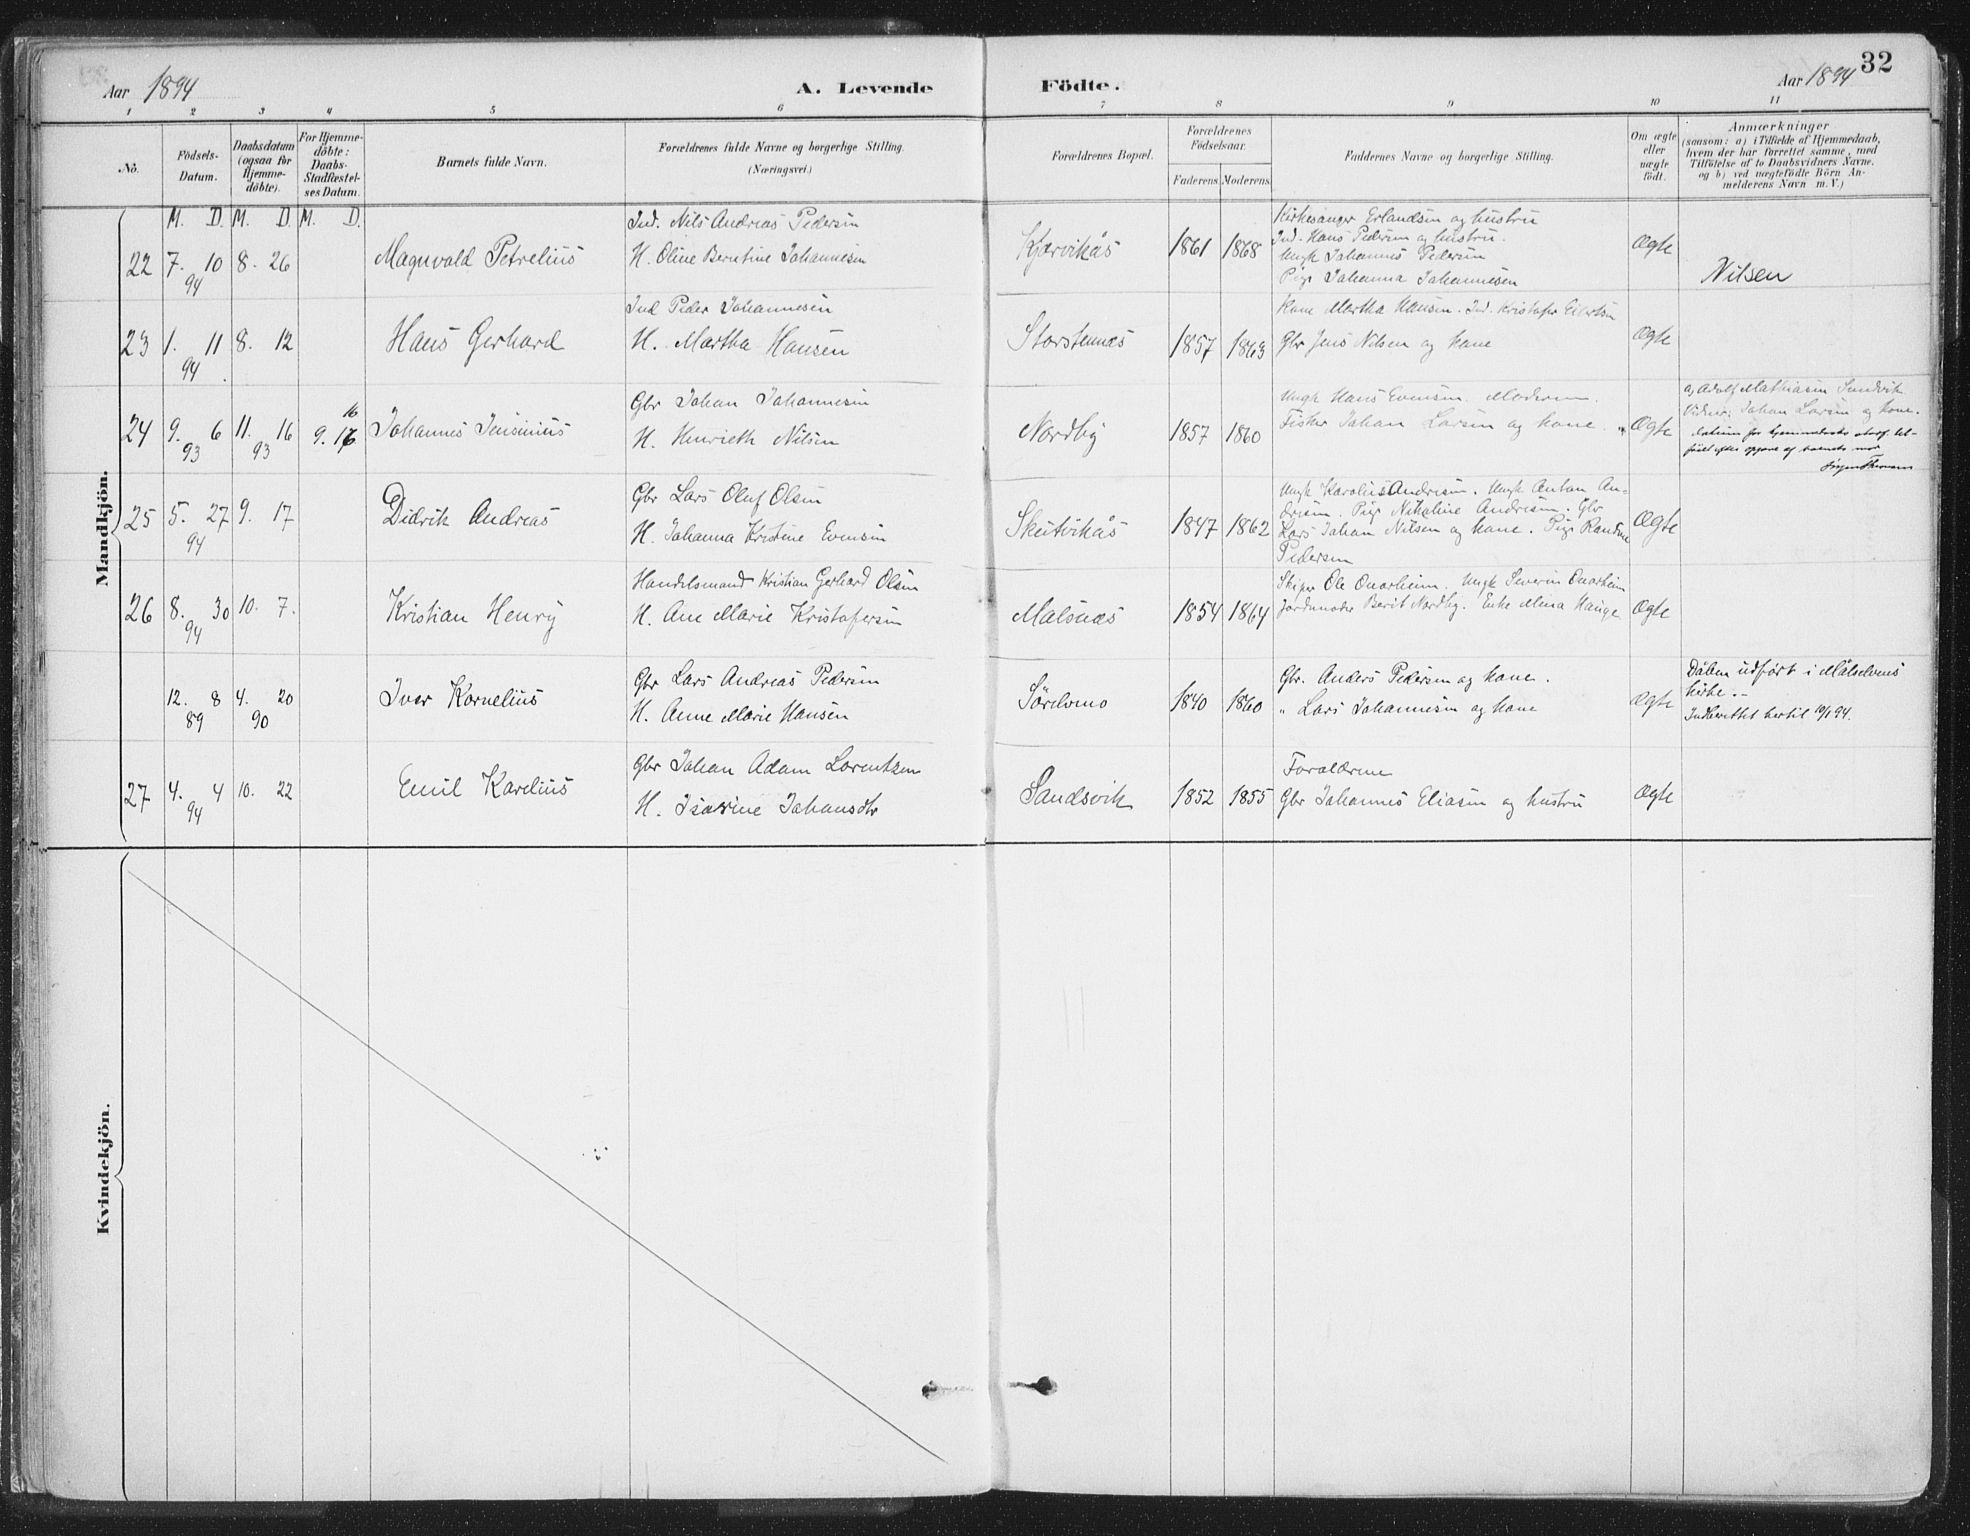 32
Aar 1894 A. Levende Födte. Aar 1894
1 2 3 4 5 6 7 8 9 10 11
No.
Födsels-
Datum.
Daabsdatum
(ogsaa för
Hjemme-
döbte).
For Hjemme-
döbte:
Daabs-
Stadfæstel-
ses Datum.
Barnets fulde Navn.
Forældrenes fulde Navne og borgerlige Stilling.
(Næringsvei.)
Forældrenes Bopæl.
Forældrenes
Födselsaar.
Faderens. Moderens.
Faddernes Navne og borgerlige Stilling.
Om ægte
eller
uægte
födt.
Anmærkninger
(saasom: a) i Tilfælde af Hjemmedaab,
hvem der har forrettet samme, med
Tilföielse af to Daabsvidners Navne.
og b) ved uægtefödte Börn An-
melderens Navn m. V.)
Mandkjön.
M. D. M. D. M. D.
22 7. 10 94 8. 26
Magnvald Petrelius
Ind. Nils Andreas Pedersen
H. Oline Berntine Johannesen
Kjærvikås
1861 1868
Kirkesanger Erlandsen og hustru
Ind. Hans Pedersen og hustru.
Ungk Johannes Pedersen
Pige Johanna Johannesen
Ægte
Nilsen
23 1. 11 94 8. 12
Hans Gerhard
Ind Peder Johannesen
H. Martha Hansen
Storstennæs
1857 1863
Kone Martha Hansen. Ind. Kristofer Eilertsen
Gbr Jens Nilsen og kone
Ægte
24 9. 6 93 11. 16 93 9. 16 16
Johannes Jensinius
Gbr Johan Johannesen
H. Henrieth Nilsen
Nordby
1857 1860
Ungk Hans Evensen. Moderen.
Fisker Johan Larsen og kone.
Ægte
Adolf Mathiasen Sandvik
Vidner: Johan Larsen og kone.
25 5. 27 94 9. 17
Didrik Andreas
Gbr Lars Oluf Olsen
H. Johanna Kristine Evensen
Skutvikås
1847 1862
Ungk Karolius Andresen. Ungk Anton An-
dresen. Pige Nikoline Andresen. Gbr
Lars Johan Nilsen og kone. Pige Randine
Pedersen
Ægte
26 8. 30 94 10. 7.
Kristian Henry
Handelsmand Kristian Gerhard Olsen
H. Ane Marie Kristofersen
Malsnæs
1854 1864
Skipper Ole Qvarheim. Ungk Severin Qvarheim
Jordmoder Berit Nordby. Enke Mina Hauge
Ægte
12. 8 89 4. 20 90
Iver Kornelius
Gbr Lars Andreas Pedersen
H. Anne Marie Hansen
Sördsmo
1840 1860
Gbr. Anders Pedersen og kone.
" Lars Johannesen og kone
Ægte
Dåben udført i Målselvens
kirke. –
Indberettet hertil 10/1 94.
27 4. 4 94 10. 22
Emil Karelius
Gbr Johan Adam Lorentzen
H. Isarine Johansdtr
Sandsvik
1852 1855
Forældrene
Gbr Johannes Eliasen og hustru
Ægte
Kvindekjön.